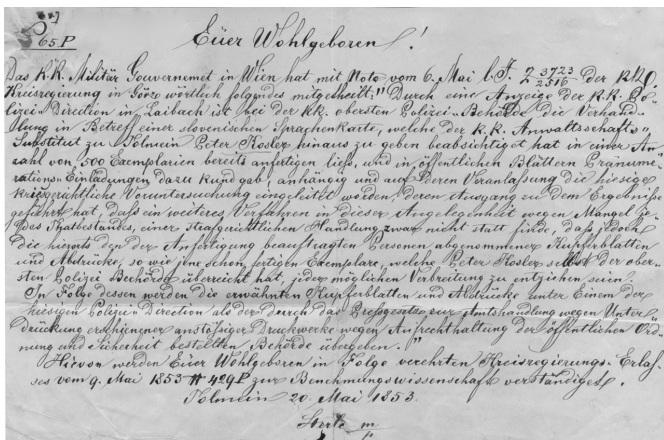 65 P
Euer Wohlgeboren!
Das K.K. Militär Gouvernemet in Wien hat mit Note vom 6. Mai l. J. Z 3723/2516 der k.k.
Kreisregierung in Görz wörtlich folgendes mitgetheilt: "Durch eine Anzeige der K.K. Po-
lizei-Direction in Laibach ist bei der k.k. obersten Polizei-Behörde die Verhand-
lung in Betreff einer slovenischen Sprachenkarte, welche der K.K. Anwaltschafts-
Substitut zu Tolmein Peter Kosler hinaus zu geben beabsichtiget hat in einer An-
zahl von 500 Exemplarien bereits anfertigen ließ, und in öffentlichen Blättern Pränume-
rations-Einladungen dazu kund gab, anhängig und auf deren Veranlassung die hiesige
kriegsgerichtliche Voruntersuchung eingeleitet worden, deren Ausgang zu dem Ergebnisse
geführt hat, daß ein weiteres Verfahren in dieser Angelegenheit wegen Mangel
des Thatbestandes, einer strafgerichtlichen Handlung zwar nicht statt finde, daß jedoch
die hierorts den der Anfertigung beauftragten Personen abgenommener Kupferblatten
und Abdrücke, so wie jene schon fertigen Exemplare, welche Peter Kosler selbst der ober-
sten Polizei Bechörde überreicht hat, jeder möglichen Verbreitung zu entziehen seien.
In Folge dessen werden die erwähnten Kupferblatten und Abdrücke unter Einem der
hiesigen Polizei-Direction als der durch das Preßgesetze zur Amtshandlung wegen Unter-
drückung erschienener anstößiger Druckwerke wegen Aufrechthaltung der öffentlichen Ord-
nung und Sicherheit bestellten Behörde übergeben."
Hievon werden Euer Wohlgeboren in Folge verehrten Kreisregierungs-Erlas-
ses vom 9. Mai 1853 # 429 P zur Benehmungswissenschaft verständiget.
Tolmein 20. Mai 1853.